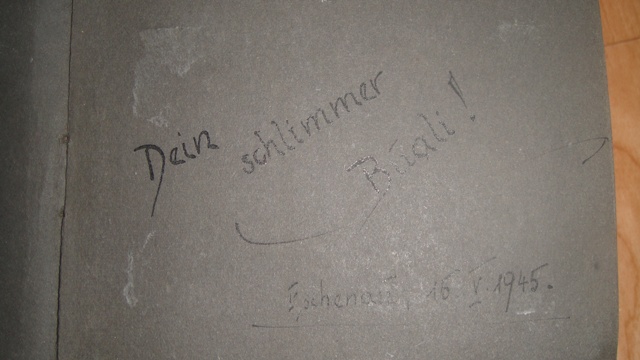 Dein schlimmer
Büali!
16 V. 1945.